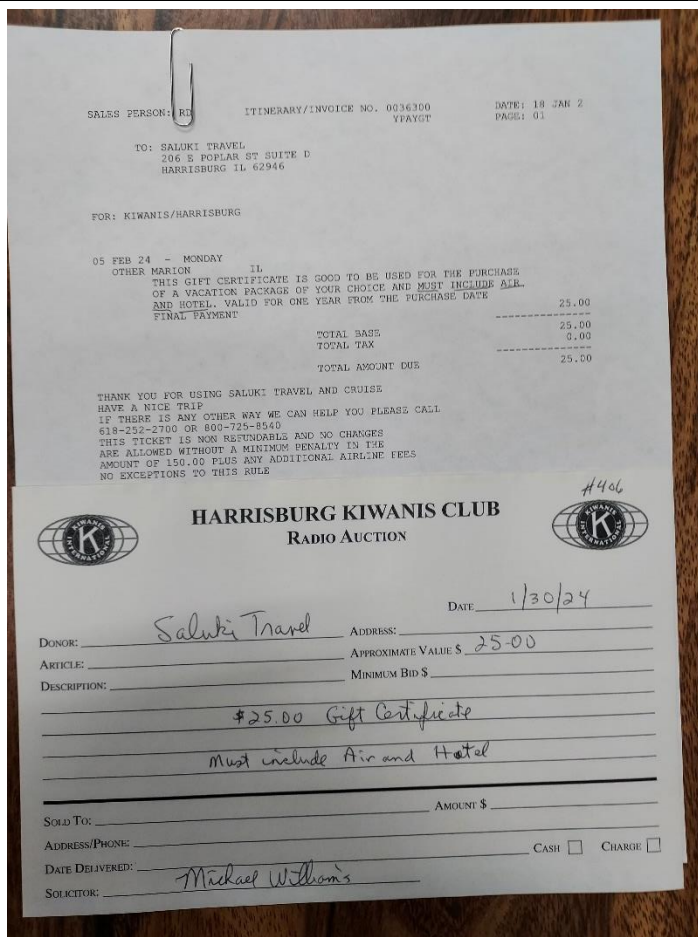 SALES PERSON: RD ITINERARY/INVOICE NO. 0036300 DATE: 18 JAN 2
YPAYGT PAGE: 01
TO: SALUKI TRAVEL
206 E POPLAR ST SUITE D
HARRISBURG IL 62946
FOR: KIWANIS/HARRISBURG
05 FEB 24 - MONDAY
OTHER MARION IL
THIS GIFT CERTIFICATE IS GOOD TO BE USED FOR THE PURCHASE
OF A VACATION PACKAGE OF YOUR CHOICE AND MUST INCLUDE AIR
AND HOTEL. VALID FOR ONE YEAR FROM THE PURCHASE DATE
FINAL PAYMENT 25.00
TOTAL BASE 25.00
TOTAL TAX 0.00
TOTAL AMOUNT DUE 25.00
THANK YOU FOR USING SALUKI TRAVEL AND CRUISE
HAVE A NICE TRIP
IF THERE IS ANY OTHER WAY WE CAN HELP YOU PLEASE CALL
618-252-2700 OR 800-725-8540
THIS TICKET IS NON REFUNDABLE AND NO CHANGES
ARE ALLOWED WITHOUT A MINIMUM PENALTY IN THE
AMOUNT OF 150.00 PLUS ANY ADDITIONAL AIRLINE FEES
NO EXCEPTIONS TO THIS RULE
#406
KIWANIS INTERNATIONAL K
HARRISBURG KIWANIS CLUB
KIWANIS INTERNATIONAL K
RADIO AUCTION
DATE 1/30/24
DONOR: Saluki Travel ADDRESS:
ARTICLE: APPROXIMATE VALUE $ 25.00
DESCRIPTION: MINIMUM BID $
$25.00 Gift Certificate
Must include Air and Hotel
SOLD TO: AMOUNT $
ADDRESS/PHONE:
DATE DELIVERED: CASH CHARGE
SOLICITOR: Michael Williams